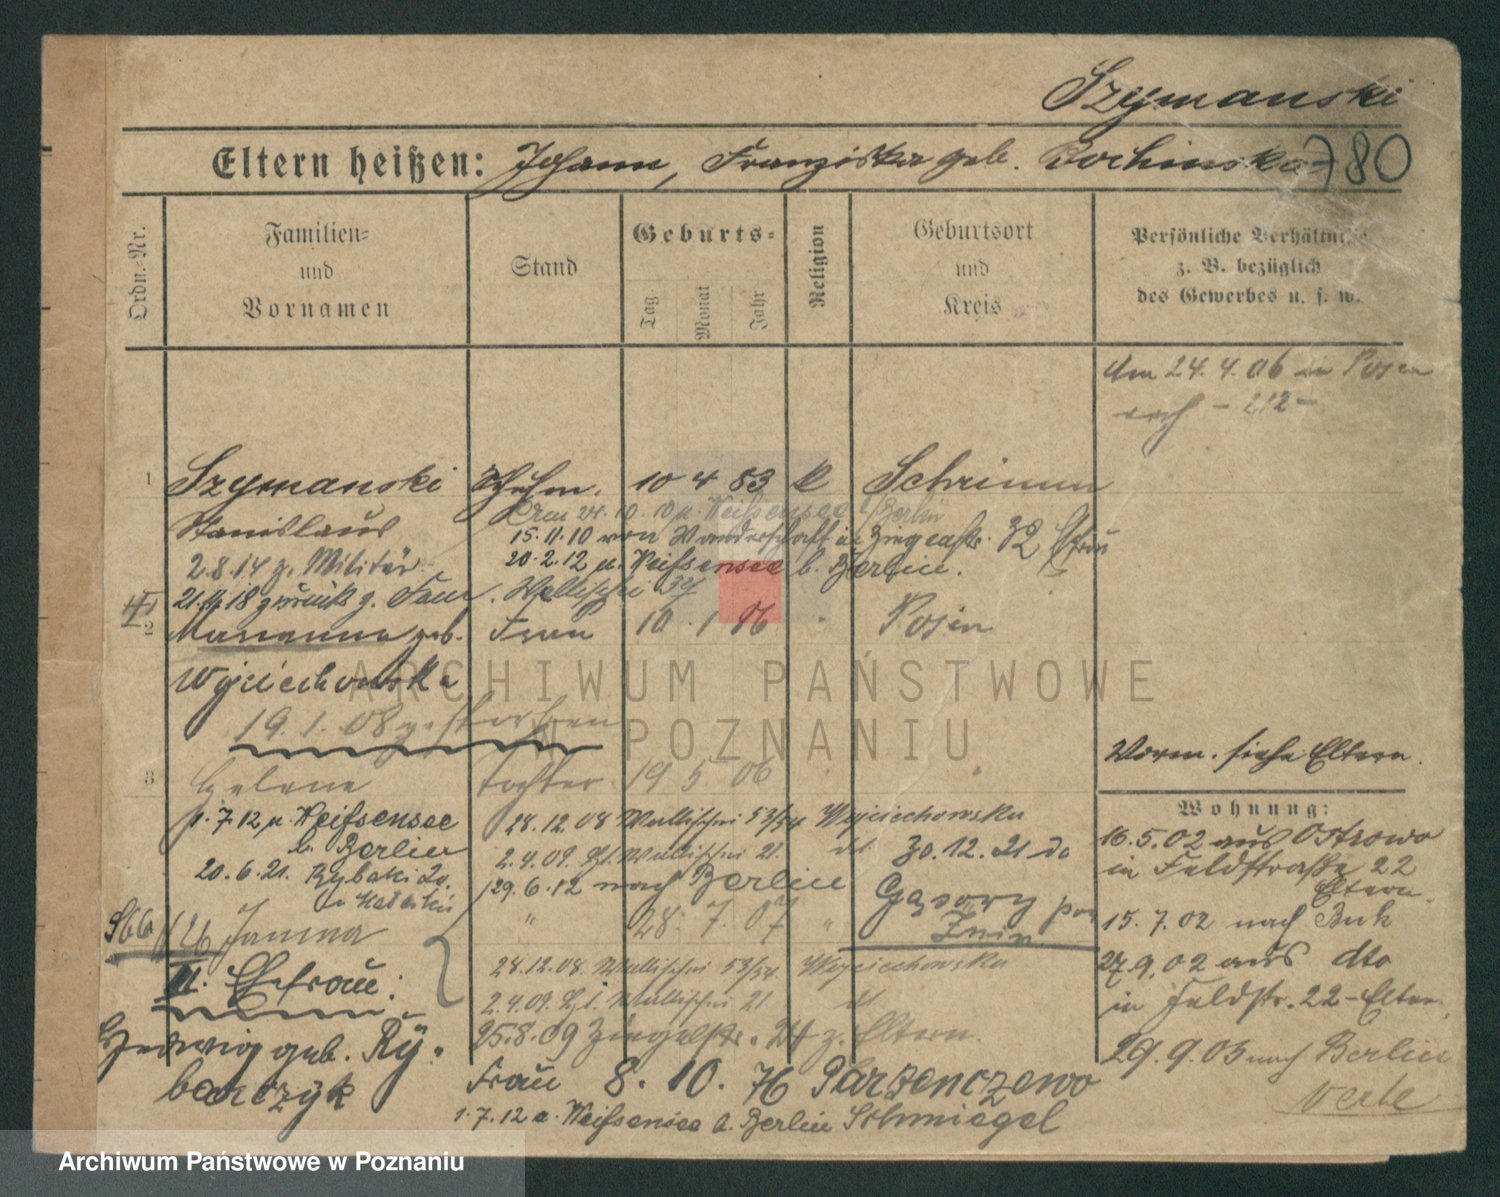 Szymanski
Eltern heißen: Johann, Franziska geb. Bochinska 780
Ordn.-Nr.
Familien-
und
Vornamen
Stand
Geburts-
Tag
Monat
Jahr
Religion
Geburtsort
und
Kreis
Persönliche Verhältnisse
z. B. bezüglich
des Gewerbes u. s. w.
Am 24. 4. 06 in Posen
- 212 -
1 Szymanski 10 4 83 k Schrimm
Stanislaus
15. 11. 10 von Wanderschaft in Ziegenstr. 32
2. 8. 14 z. Militär
20. 2. 12 n. Weißensee b. Berlin.
21. 11. 18 zurück z. Fam. Wallischei
2 Marianna geb. Frau 10 1 86 " Posen
Wojciechowska
19. 1. 08 gestorben
Vorm. siehe Eltern.
3 Helene Tochter 19 5 06 " "
Wohnung:
1. 7. 12 n. Weißensee
b. Berlin
28. 12. 08 Wallischei 53/54 Wojciechowska
16. 5. 02 aus Ostrowo
in Feldstraße 22
Eltern.
2. 4. 09. Wallischei 21. dt. 30. 12. 21 do
20. 6. 21. Rybaki
29. 6. 12 nach Berlin
Gąsawy
Żnin
15. 7. 02 nach Buk
Janina " 28. 7. 07 "
27. 9. 02 aus dto
in Feldstr. 22 - Eltern
28. 12. 08. Wallischei 53/54. Wojciechowska
II. Ehefrau:
2. 4. 09. Wallischei 21 dt
25. 8. 09 z. Eltern.
29. 9. 03 nach Berlin
Hedwig geb. Ry-
barczyk
Frau 8. 10. 76 Parzenczewo
verte
1. 7. 12 n. Weißensee b. Berlin Schmiegel
ARCHIWUM PAŃSTWOWE
W POZNANIU
Archiwum Państwowe w Poznaniu